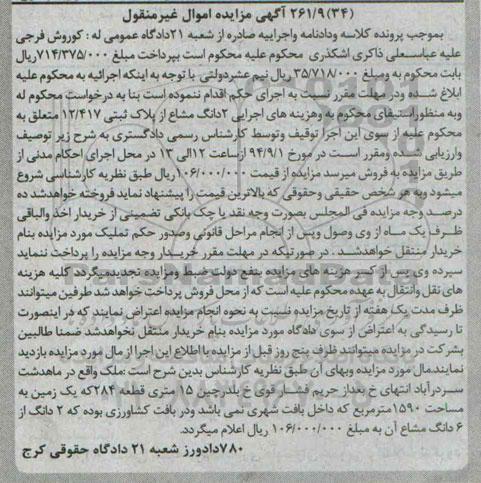 (۳۴) ۲۶۱/۹ آگهی مزایده اموال غیرمنقول
بموجب پرونده کلاسه ودادنامه واجراییه صادره از شعبه ۲۱دادگاه عمومی له : کوروش فرجی
علیه عباسعلی ذاکری اشکذری محکوم علیه محکوم است بپرداخت مبلغ ۷۱۴/۳۷۵/۰۰۰ریال
بابت محکوم به ومبلغ ۳۵/۷۱۸/۰۰۰ریال نیم عشردولتی با توجه به اینکه اجرائیه به محکوم علیه
ابلاغ شده ودر مهلت مقرر نسبت به اجرای حکم اقدام ننموده است بنا به درخواست محکوم له
وبه منظوراستیفای محکوم به وهزینه های اجرایی ۲دانگ مشاع از پلاک ثبتی ۱۲/۴۱۷ متعلق به
محکوم علیه از سوی این اجرا توقیف وتوسط کارشناس رسمی دادگستری به شرح زیر توصیف
وارزیابی شده ومقرر است در مورخ ۹۴/۹/۱ ازساعت ۱۲الی ۱۳ در محل اجرای احکام مدنی از
طریق مزایده به فروش میرسد مزایده از قیمت ۱۰۶/۰۰۰/۰۰۰ریال طبق نظریه کارشناسی شروع
میشود وبه هر شخص حقیقی وحقوقی که بالاترین قیمت را پیشنهاد نماید فروخته خواهدشد ده
درصد وجه مزایده فی المجلس بصورت وجه نقد یا چک بانکی تضمینی از خریدار اخذ والباقی
ظرف یک ماه از وی وصول وپس از انجام مراحل قانونی وصدور حکم تملیک مورد مزایده بنام
خریدار منتقل خواهدشد . در صورتیکه در مهلت مقرر خریدار وجه مزایده را پرداخت ننماید
سپرده وی پس از کسر هزینه های مزایده بنفع دولت ضبط ومزایده تجدیدمیگردد کلیه هزینه
های نقل وانتقال به عهده محکوم علیه است که از محل فروش پرداخت خواهد شد طرفین میتوانند
ظرف مدت یک هفته از تاریخ مزایده نسبت به نحوه انجام مزایده اعتراض نمایند که در اینصورت
تا رسیدگی به اعتراض از سوی دادگاه مورد مزایده بنام خریدار منتقل نخواهدشد ضمنا طالبین
بشرکت در مزایده میتوانند ظرف پنج روز قبل از مزایده با اطلاع این اجرا از مال مورد مزایده بازدید
نمایند.مال مورد مزایده وبهای آن طبق نظریه کارشناس بدین شرح است :ملک واقع در ماهدشت
سردرآباد انتهای خ بعداز حریم فشار قوی خ بلدرچین ۱۵ متری قطعه ۲۸۴که یک زمین به
مساحت ۱۵۹۰مترمربع که داخل بافت شهری نمی باشد ودر بافت کشاورزی بوده که ۲ دانگ از
۶ دانگ مشاع آن به مبلغ ۱۰۶/۰۰۰/۰۰۰ ریال اعلام میگردد.
۷۸۰دادورز شعبه ۲۱ دادگاه حقوقی کرج